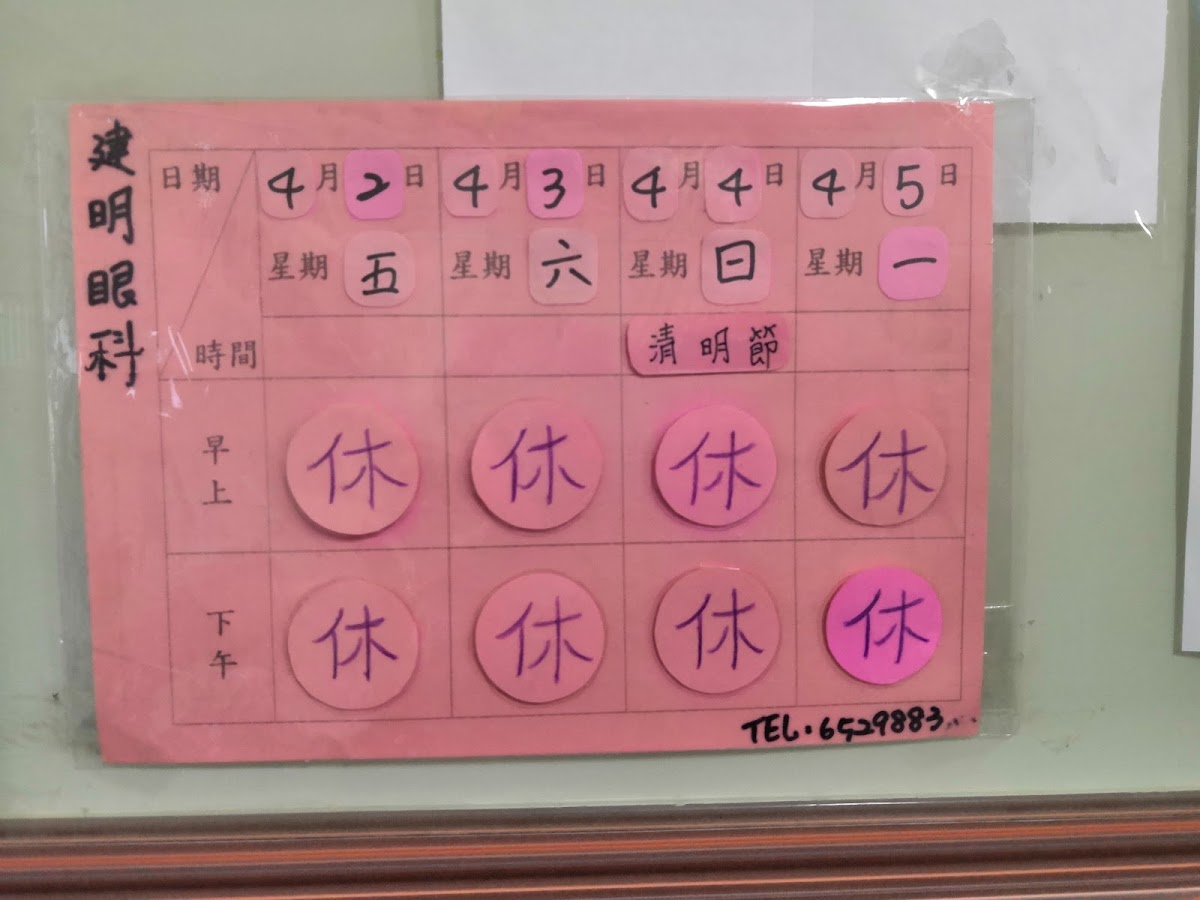 建明眼科
日期 4月2日 4月3日 4月4日 4月5日
星期五 星期六 星期日 星期一
時間 清明節
早上 休 休 休 休
下午 休 休 休 休
TEL.6529883